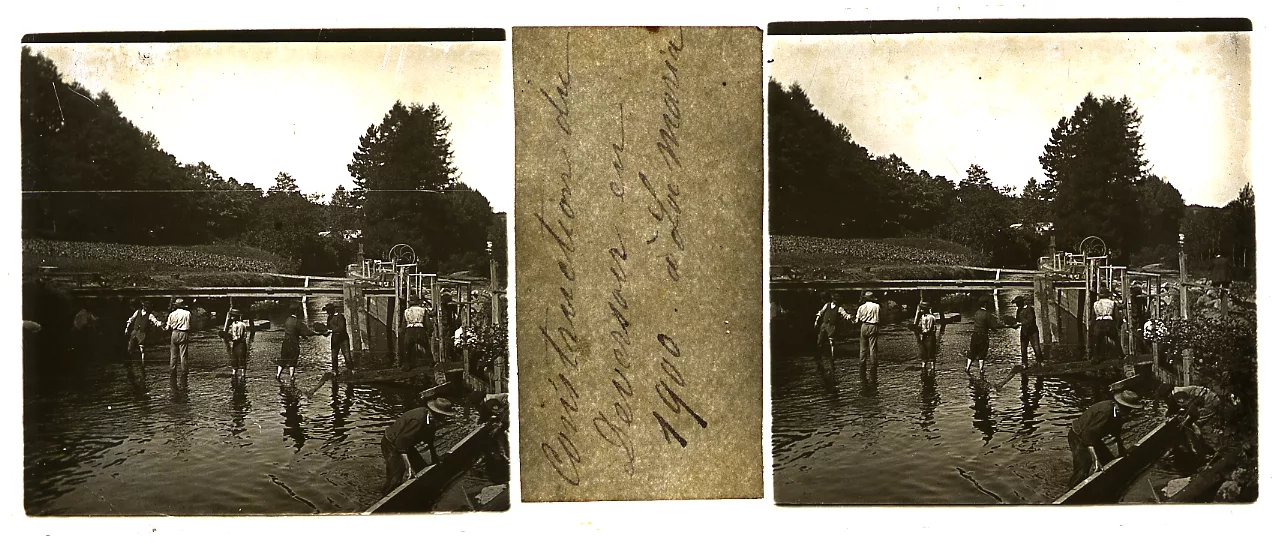 Construction du
Deversoir en
1900. à La maria